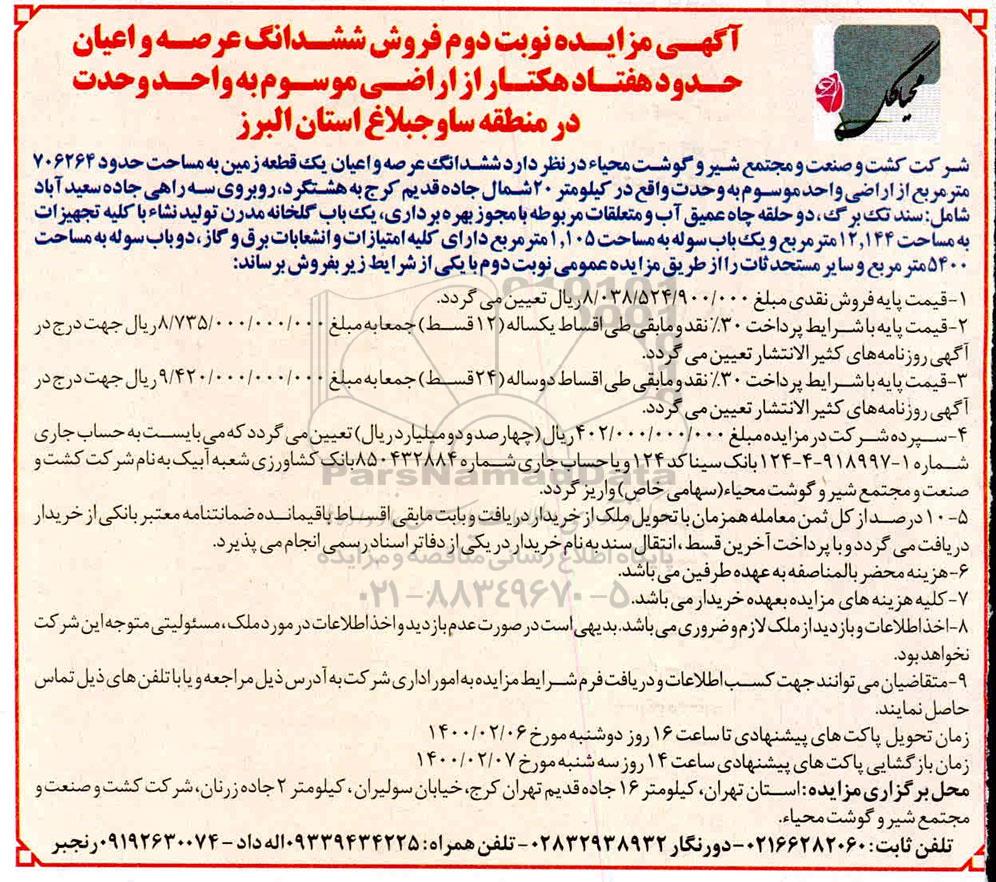 آگهی مزایده نوبت دوم فروش ششدانگ عرصه و اعیان
حدود هفتاد هکتار از اراضی موسوم به واحد وحدت
در منطقه ساوجبلاغ استان البرز
محیاگل
شرکت کشت و صنعت و مجتمع شیر و گوشت محیاء در نظر دارد ششدانگ عرصه و اعیان یک قطعه زمین به مساحت حدود ۷۰۶۲۶۴
مترمربع از اراضی واحد موسوم به وحدت واقع در کیلومتر ۲۰ شمال جاده قدیم کرج به هشتگرد، روبروی سه راهی جاده سعید آباد
شامل: سند تک برگ، دو حلقه چاه عمیق آب و متعلقات مربوطه با مجوز بهره برداری، یک باب گلخانه مدرن تولید نشاء با کلیه تجهیزات
به مساحت ۱۲,۱۴۴ متر مربع و یک باب سوله به مساحت ۱,۱۰۵ متر مربع دارای کلیه امتیازات و انشعابات برق و گاز، دو باب سوله به مساحت
۵۴۰۰ متر مربع و سایر مستحدثات را از طریق مزایده عمومی نوبت دوم با یکی از شرایط زیر بفروش برساند:
۱-قیمت پایه فروش نقدی مبلغ ۸/۰۳۸/۵۲۴/۹۰۰/۰۰۰ ریال تعیین می گردد.
۲-قیمت پایه با شرایط پرداخت ۳۰٪ نقد و مابقی طی اقساط یکساله (۱۲ قسط) جمعا به مبلغ ۸/۷۳۵/۰۰۰/۰۰۰/۰۰۰ ریال جهت درج در
آگهی روزنامه های کثیر الانتشار تعیین می گردد.
۳-قیمت پایه با شرایط پرداخت ۳۰٪ نقد و مابقی طی اقساط دوساله (۲۴ قسط) جمعا به مبلغ ۹/۴۲۰/۰۰۰/۰۰۰/۰۰۰ ریال جهت درج در
آگهی روزنامه های کثیر الانتشار تعیین می گردد.
۴-سپرده شرکت در مزایده مبلغ ۴۰۲/۰۰۰/۰۰۰/۰۰۰ ریال (چهارصد و دو میلیارد ریال) تعیین می گردد که می بایست به حساب جاری
شماره ۱-۹۱۸۹۹۷-۴-۱۲۴ بانک سینا کد ۱۲۴ و یا حساب جاری شماره ۸۵۰۴۳۲۸۸۴ بانک کشاورزی شعبه آبیک به نام شرکت کشت و
صنعت و مجتمع شیر و گوشت محیاء (سهامی خاص) واریز گردد.
۵- ۱۰ درصد از کل ثمن معامله همزمان با تحویل ملک از خریدار دریافت و بابت مابقی اقساط باقیمانده ضمانتنامه معتبر بانکی از خریدار
دریافت می گردد و با پرداخت آخرین قسط، انتقال سند به نام خریدار در یکی از دفاتر اسناد رسمی انجام می پذیرد.
۶-هزینه محضر بالمناصفه به عهده طرفین می باشد.
۷-کلیه هزینه های مزایده بعهده خریدار می باشد.
۸-اخذ اطلاعات و بازدید از ملک لازم و ضروری می باشد. بدیهی است در صورت عدم بازدید و اخذ اطلاعات در مورد ملک، مسئولیتی متوجه این شرکت
نخواهد بود.
۹-متقاضیان می توانند جهت کسب اطلاعات و دریافت فرم شرایط مزایده به امور اداری شرکت به آدرس ذیل مراجعه و یا با تلفن های ذیل تماس
حاصل نمایند.
زمان تحویل پاکت های پیشنهادی تا ساعت ۱۶ روز دوشنبه مورخ ۱۴۰۰/۰۲/۰۶
زمان بازگشایی پاکت های پیشنهادی ساعت ۱۴ روز سه شنبه مورخ ۱۴۰۰/۰۲/۰۷
محل برگزاری مزایده: استان تهران، کیلومتر ۱۶ جاده قدیم تهران کرج، خیابان سولیران، کیلومتر ۲ جاده زرنان، شرکت کشت و صنعت و
مجتمع شیر و گوشت محیاء.
تلفن ثابت: ۰۲۱۶۶۲۸۲۰۶۰-دورنگار ۰۲۸۳۲۹۳۸۹۳۲-تلفن همراه: ۰۹۳۳۹۴۳۴۲۲۵اله داد - ۰۹۱۹۲۶۳۰۰۷۴رنجبر
ParsNamadData
پایگاه اطلاع رسانی مناقصه و مزایده
۰۲۱-۸۸۳۴۹۶۷۰-۵